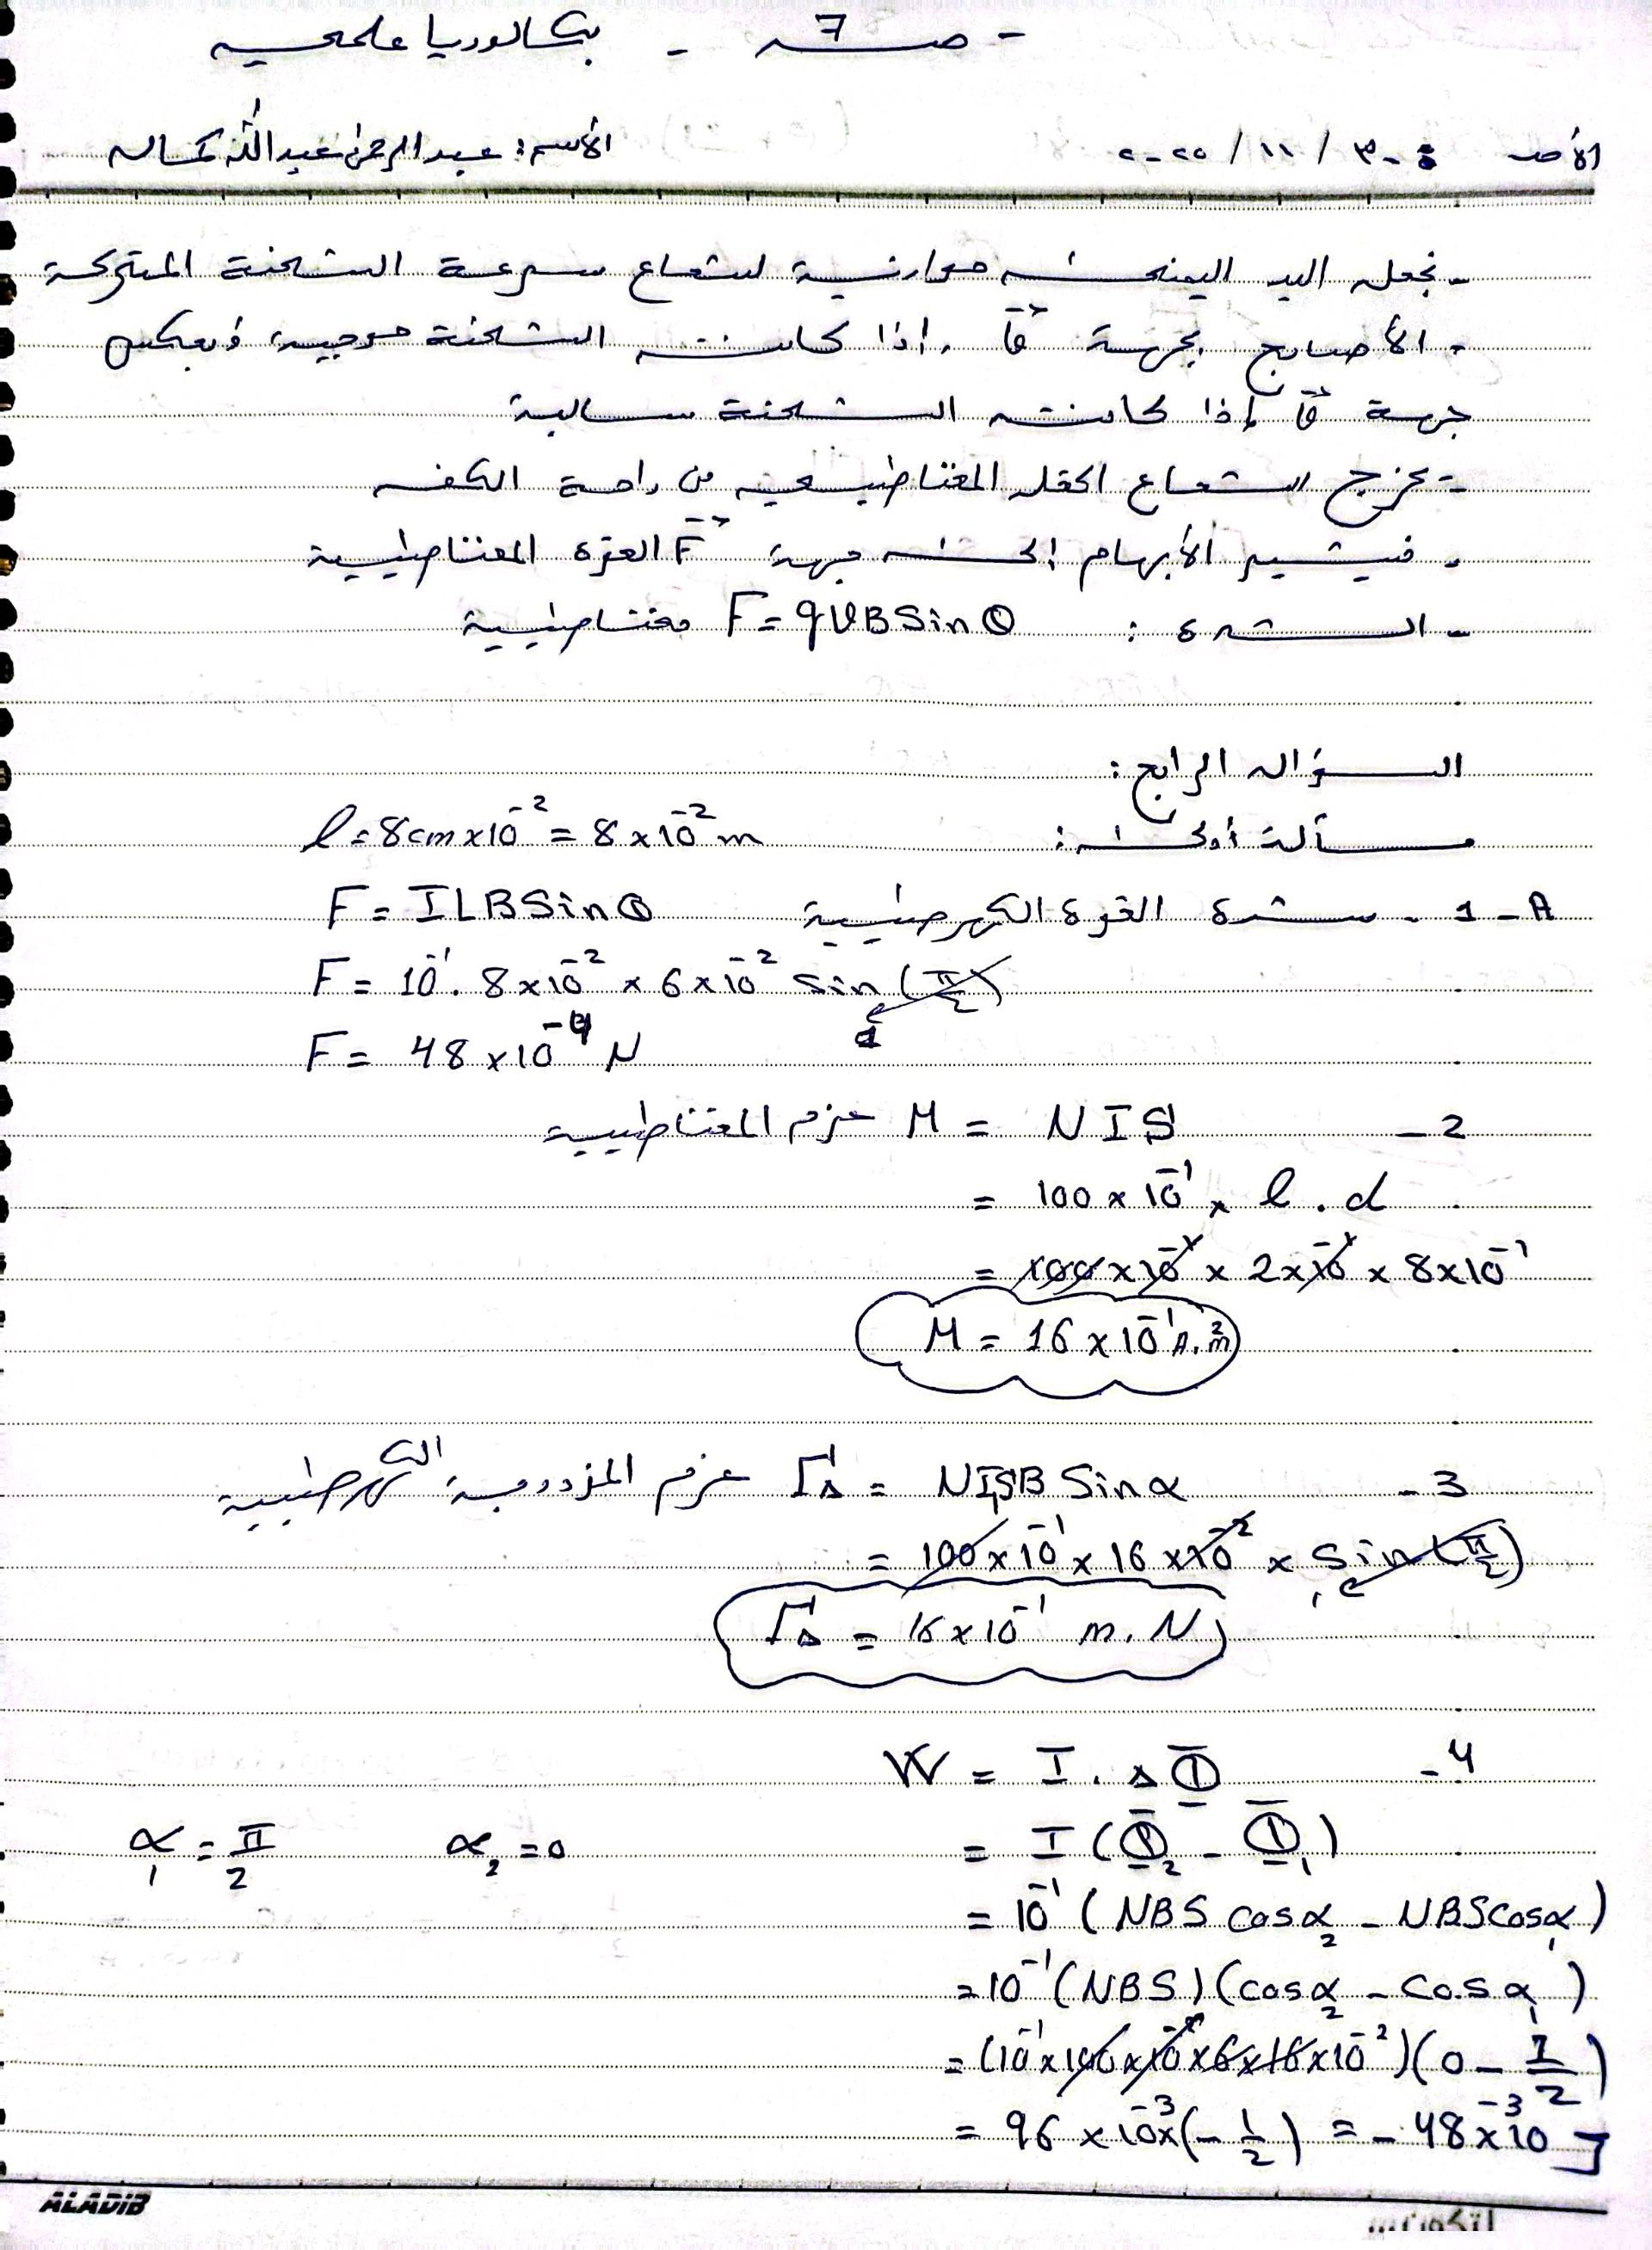 - صـ 7 - بكالوريا علمي
الأحد 30 / 11 / 2025 الأسم: عبدالرحمن عبدالله
- نجعل اليد اليمنى موازية لشعاع سرعة الشحنة المتحركة
- الأصابع بجهة v⃗ إذا كانت الشحنة موجبة وبعكس
جهة v⃗ إذا كانت الشحنة سالبة
- يخرج شعاع الحقل المغناطيسي من راحة الكف
- فيشير الأبهام إلى جهة F⃗ القوة المغناطيسية
- الشدة : F = qVBSinθ مغناطيسية
السؤال الرابع:
مسألة أولى: l = 8cm×10⁻² = 8×10⁻²m
A - 1 - شدة القوة الكهرطيسية F = ILBSinθ
F = 10⁻¹ . 8×10⁻² × 6×10⁻² sin(π/2) 1
F = 48×10⁻⁴ N
2 - M = NIS عزم المغناطيسية
= 100×10⁻¹ × l . d
= 100×10⁻¹ × 2×10⁻¹ × 8×10⁻¹
M = 16×10⁻¹ A.m²
3 - ΓΔ = NISB Sinα عزم المزدوجة الكهرطيسية
= 100×10⁻¹ × 16×10⁻² × Sin(π/2) 1
ΓΔ = 16×10⁻¹ m.N
4 - W = I . ΔΦ
= I(Φ₂ - Φ₁) α₂ = 0 α₁ = π/2
= 10⁻¹ (NBS cosα₂ - NBScosα₁)
= 10⁻¹ (NBS)(cosα₂ - Cosα₁)
= (10⁻¹×100×10⁻²×6×16×10⁻²)(0 - 1/2)
= 96×10⁻³×(-1/2) = -48×10⁻³ J
ALADIB